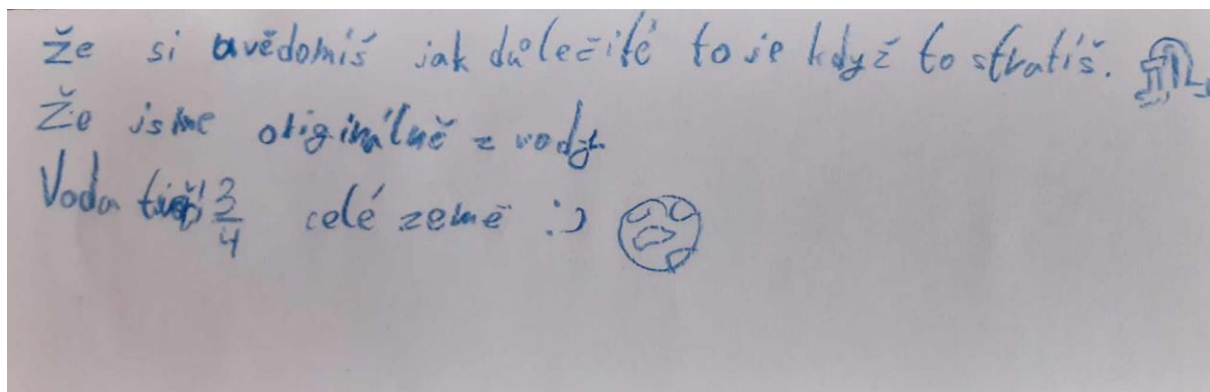 Že si uvědomíš jak důlečité to je když to stratíš.
Že jsme originálně z vody.
Voda tvoří 3/4 celé země :)